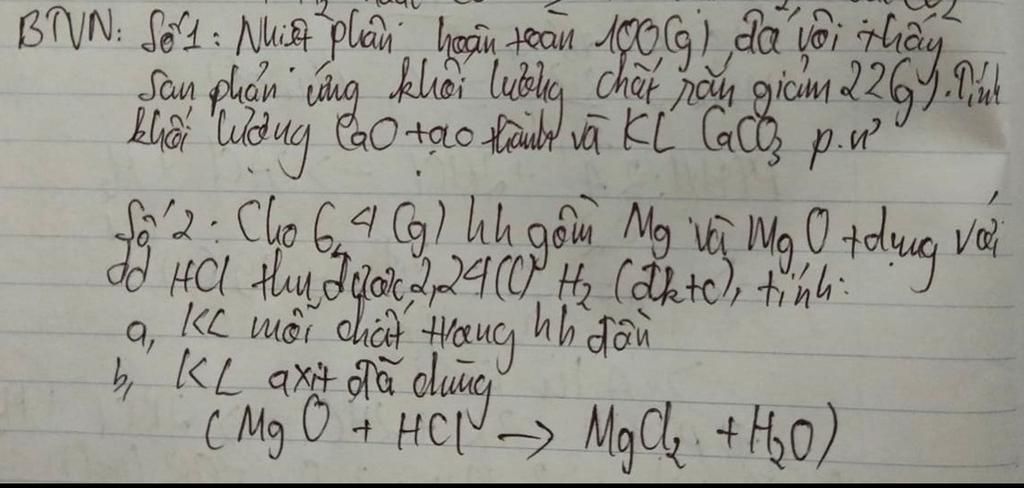 BTVN: Số 1: Nhiệt phân hoàn toàn 100(g) đá vôi thấy
sau phản ứng khối lượng chất rắn giảm 22(g). Tính
khối lượng CaO tạo thành và KL CaCO3 p.ư
Số 2: Cho 6,4(g) hh gồm Mg và MgO t dụng với
dd HCl thu được 2,24(l) H2 (đktc), tính:
a, KL mỗi chất trong hh đầu
b, KL axit đã dùng
(MgO + HCl → MgCl2 + H2O)